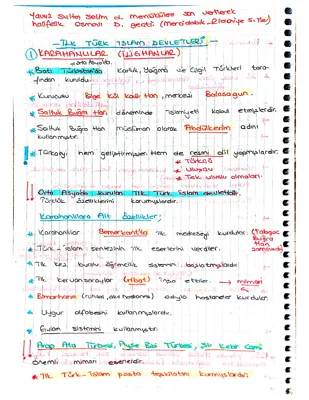 Yavuz Sultan Selim el menübüler son vererek
halifelik Osmanlı D. geçti (Mercidabık - Ridaniye S. ile)
- İLK TÜRK İSLAM DEVLETLERİ -
① KARAHANLILAR (İLİGHANLAR)
Orta Asya'da
* Batı Türkistanda Karluk, Yağma ve Çigil Türkleri tara-
fından kuruldu.
* Kurucusu Bilge Kül Kadir Han, merkezi Balasagun.
* Saltuk Buğra Han döneminde İslamiyeti kabul etmişlerdir.
* Saltuk Buğra Han müslüman olarak Abdülkerim adını
kullanmıştır.
* Türkçeyi hem geliştirmişler. Hem de resmi dil yapmışlardır.
* Türkçü
* Ulusçu
* Tek uluslu olmaları.
* Orta Asyada kurulan İlk Türk İslam devletidir.
Türklük özelliklerini korumuşlardır.
Karahanlılara Ait Özellikler;
* Karahanlılar Semerkantta İlk medreseyi kurdular. (Tabgaç Buğra Han zamanında)
* Türk - İslam sentezinin ilk eserlerini verdiler.
* İlk kez burslu öğrencilik sistemini başlatmışlardır.
* İlk kervansaraylar (ribat) inşa ettiler. → mimari
* Bimarhane adıyla hastaneler kurdular.
* Uygur alfabesini kullanmışlardır.
* Gulam sistemini kullanmıştır.
* Arap Ata Türbesi, Ayşe Bibi Türbesi, Şir Kebir Camii
önemli mimari eserleridir.
* İlk Türk-İslam posta teşkilatını kurmuşlardır.